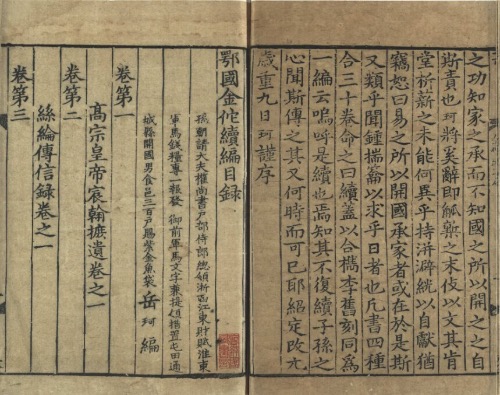 之功知家之承而不知國之所以開之之自
斯責也珂將奚辭即觚槊之末伎以文其肯
堂析薪之未能何異乎恃洴澼絖以自獻猶
竊恕曰易之所以開國承家者或在於是斯
又類乎聞鍾揣籥以求乎日者也凡書四種
合三十卷命之曰續蓋以合檇李舊刻同為
一編云嗚呼是續也焉知其不復續子孫之
心聞斯傳之其又何時而可已耶紹定改元
歲重九日珂謹序
鄂國金佗續編目錄
孫朝請大夫權尚書戶部侍郎總領浙西江東財賦淮東
軍馬錢糧專一報發 御前軍馬文字兼提領措置屯田通
城縣開國男食邑三百戶賜紫金魚袋 岳 珂 編
卷第一
高宗皇帝宸翰摭遺卷之一
卷第二
絲綸傳信錄卷之一
卷第三